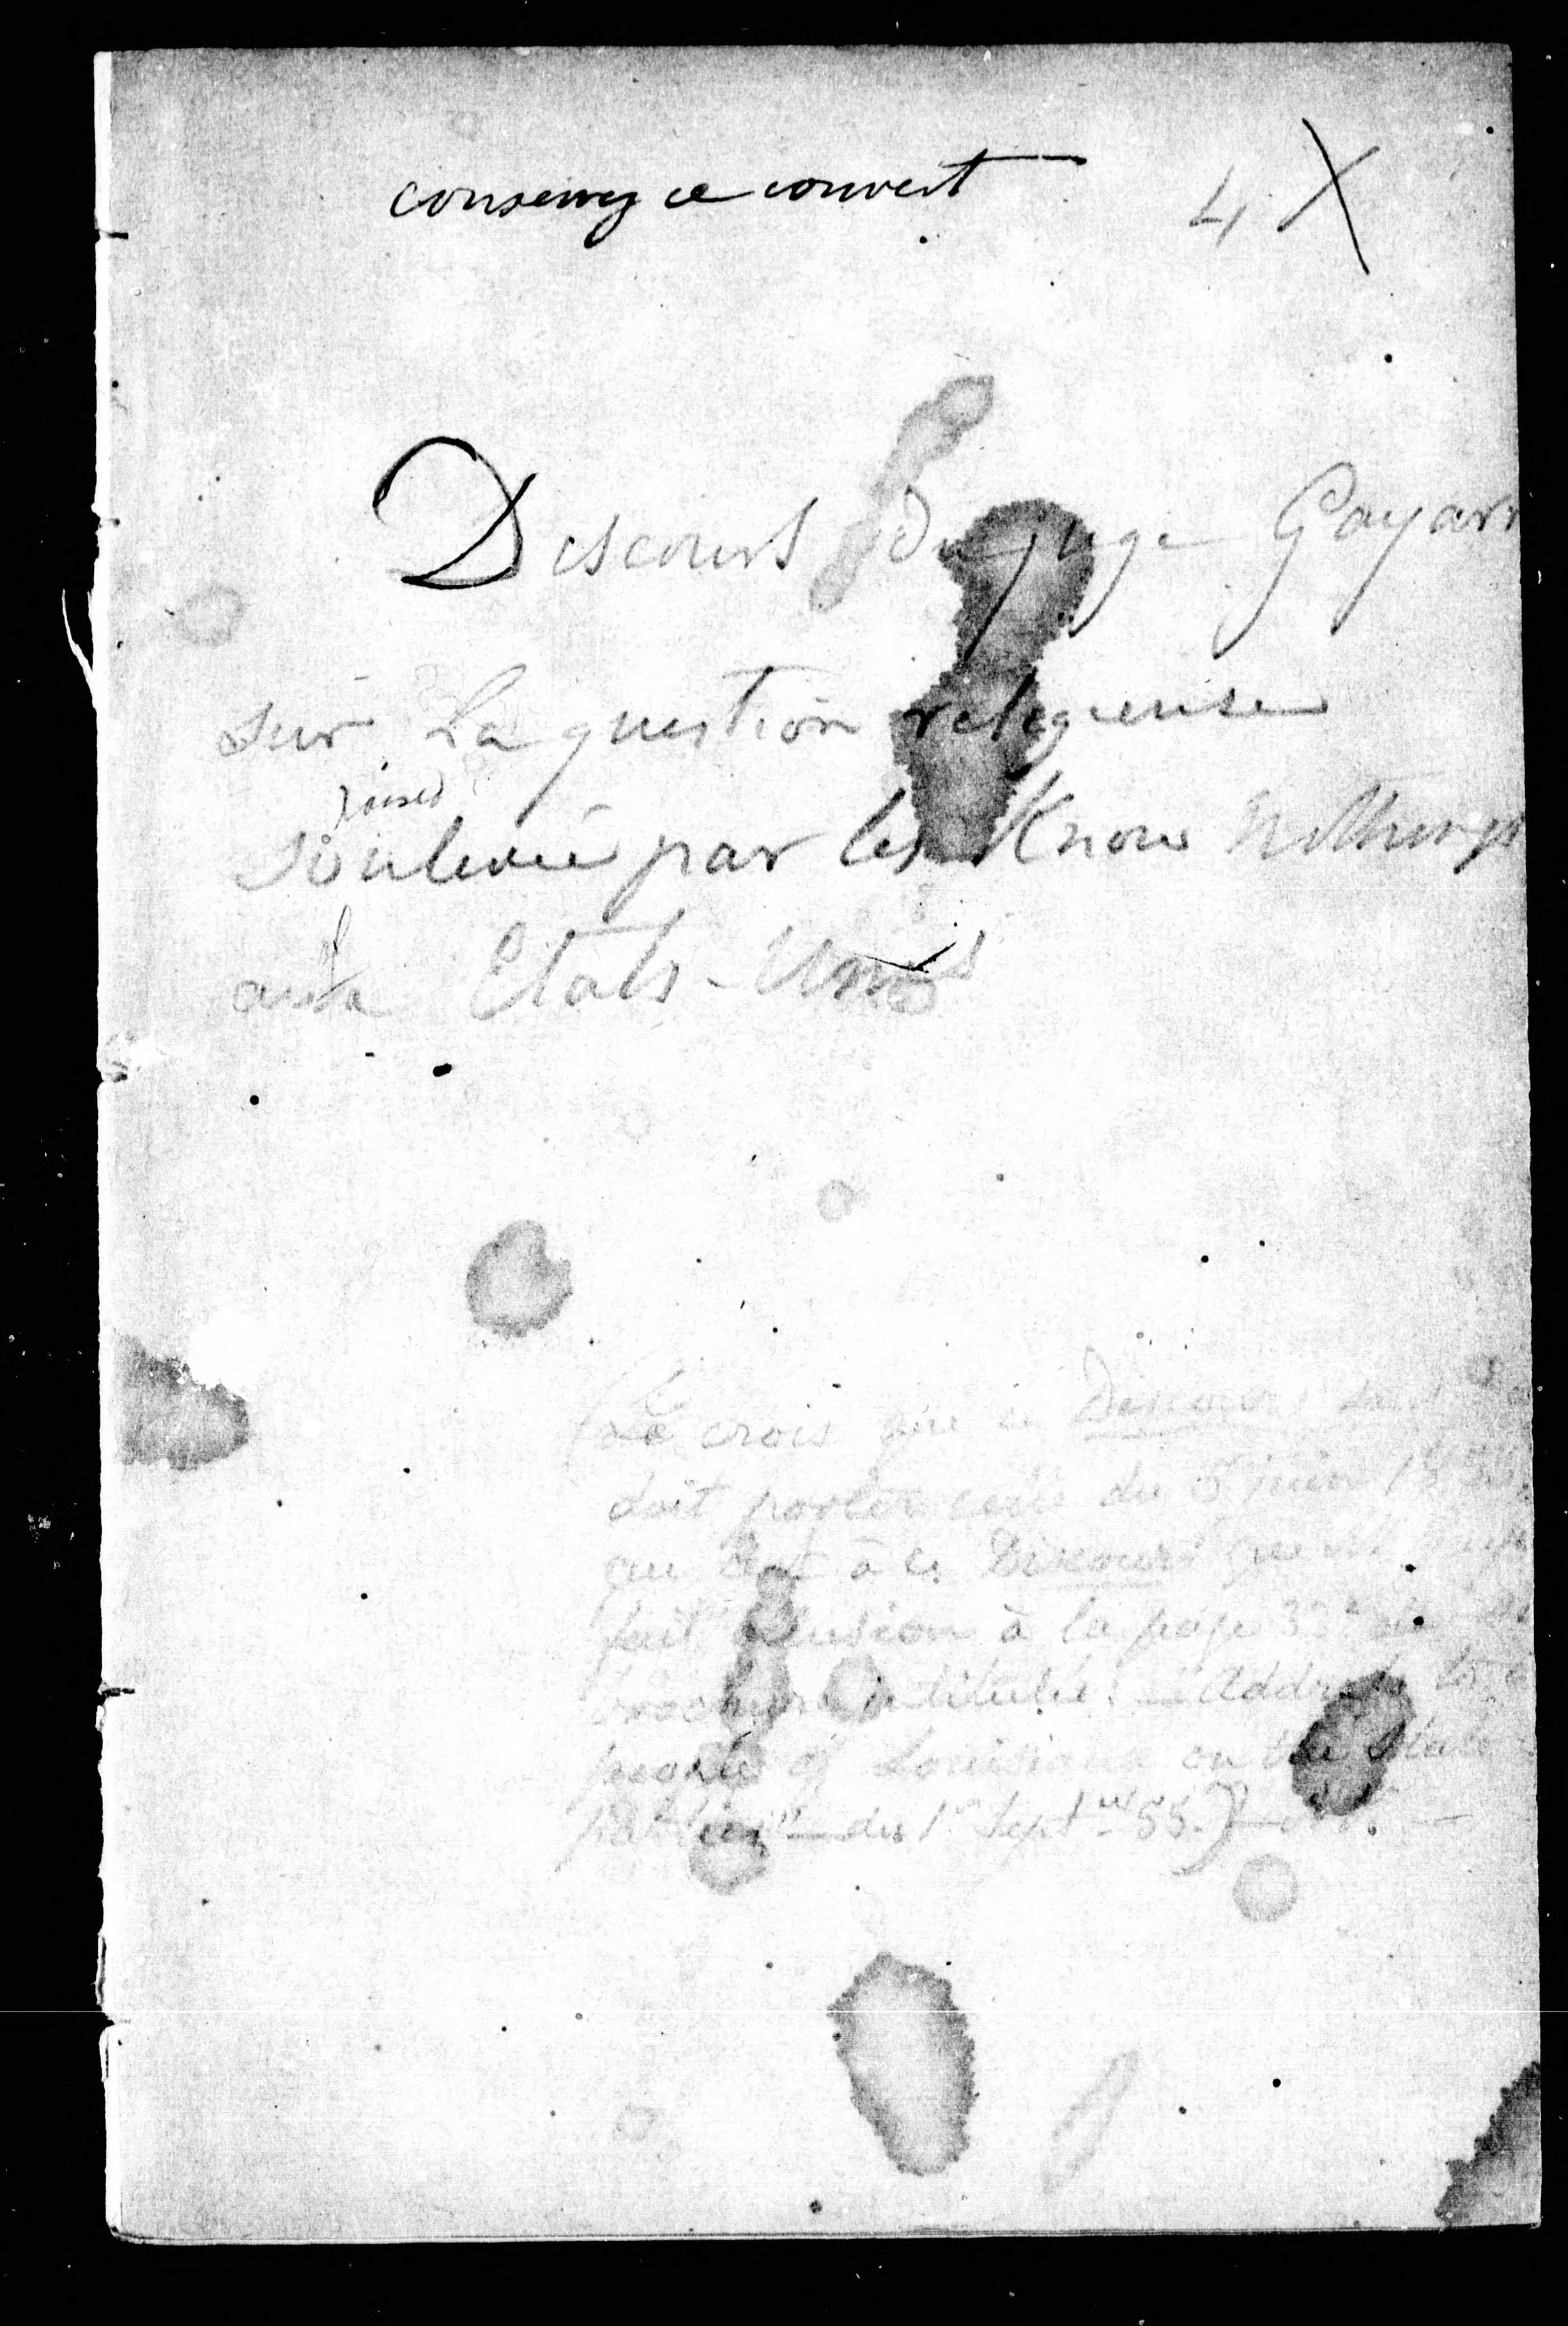 conservez ce couvert 4 X
Discours du juge Gayarr
sur la question religieuse
raised
soulevée par les Know Nothings
aux Etats-Unis
crois que ce Discours
doit porter celle du 5 juin 185
que à ce Discours que
fait allusion à la page 33
brochure intitulée: Address to
people of Louisiana on the State
parties du 1er Septbre 55.)